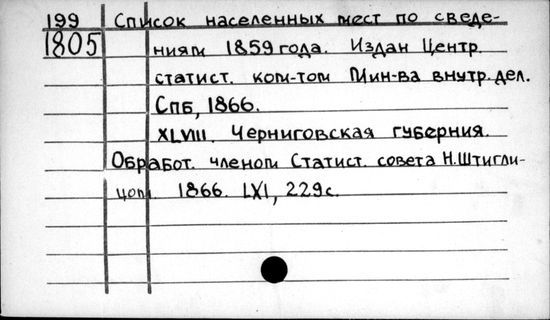 199 Список населенных мест по сведе-
1805 ниям 1859 года. Издан Центр.
статист. ком-том Мин-ва внутр. дел.
Спб, 1866.
XLVIII. Черниговская губерния.
Обработ. членом Статист. совета Н. Штигли-
цом. 1866. LXI, 229 с.